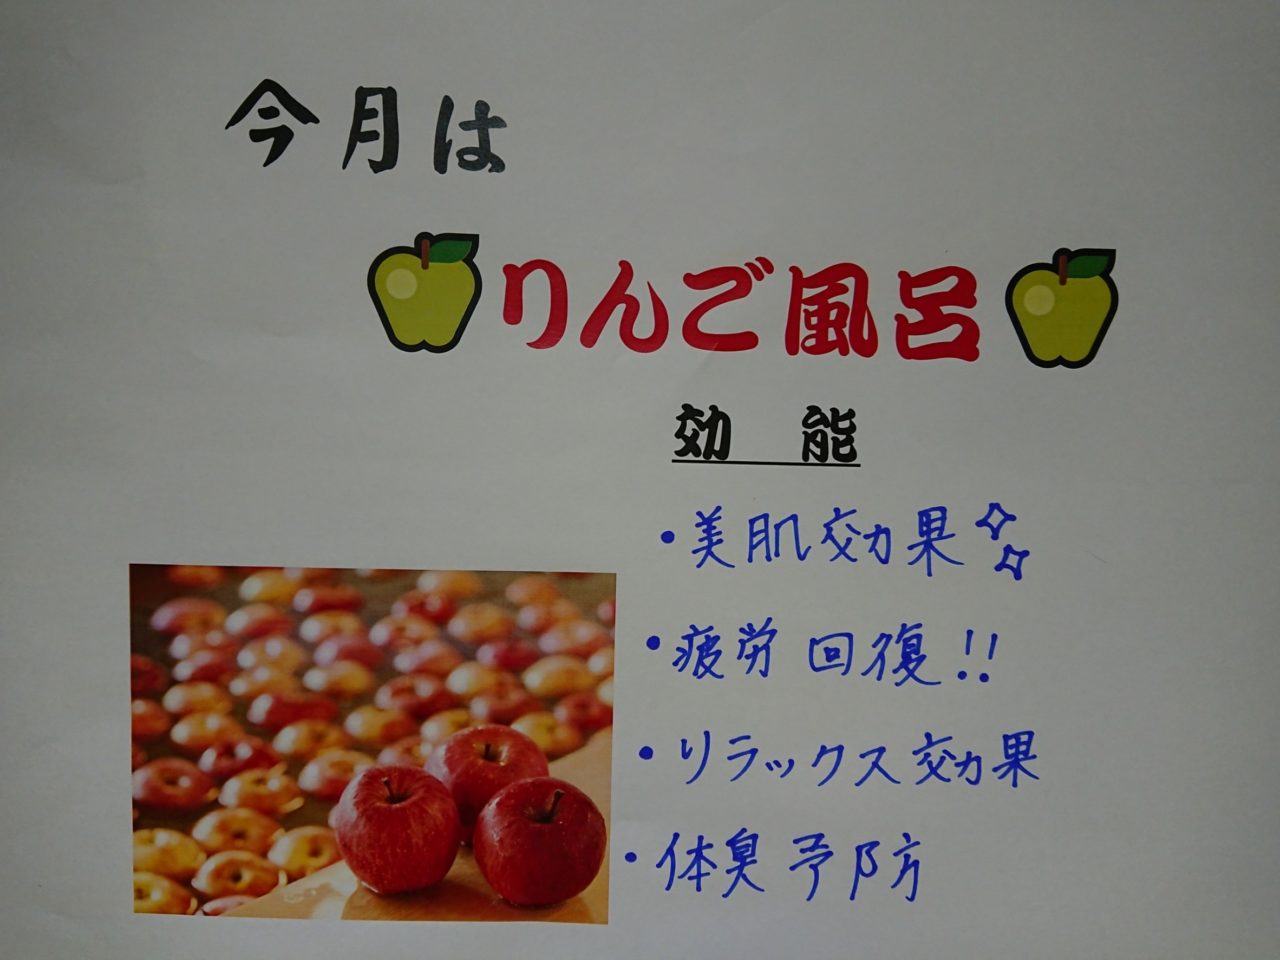 今月は
りんご風呂
効 能
・美肌効果
・疲労回復!!
・リラックス効果
・体臭予防